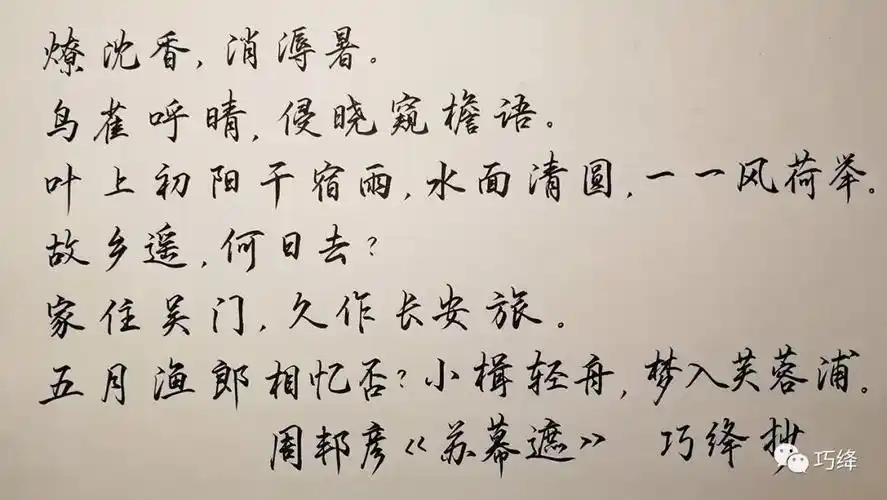 燎沈香，消溽暑。
鸟雀呼晴，侵晓窥檐语。
叶上初阳干宿雨，水面清圆，一一风荷举。
故乡遥，何日去？
家住吴门，久作长安旅。
五月渔郎相忆否？小楫轻舟，梦入芙蓉浦。
周邦彦《苏幕遮》 巧绛抄
巧绛